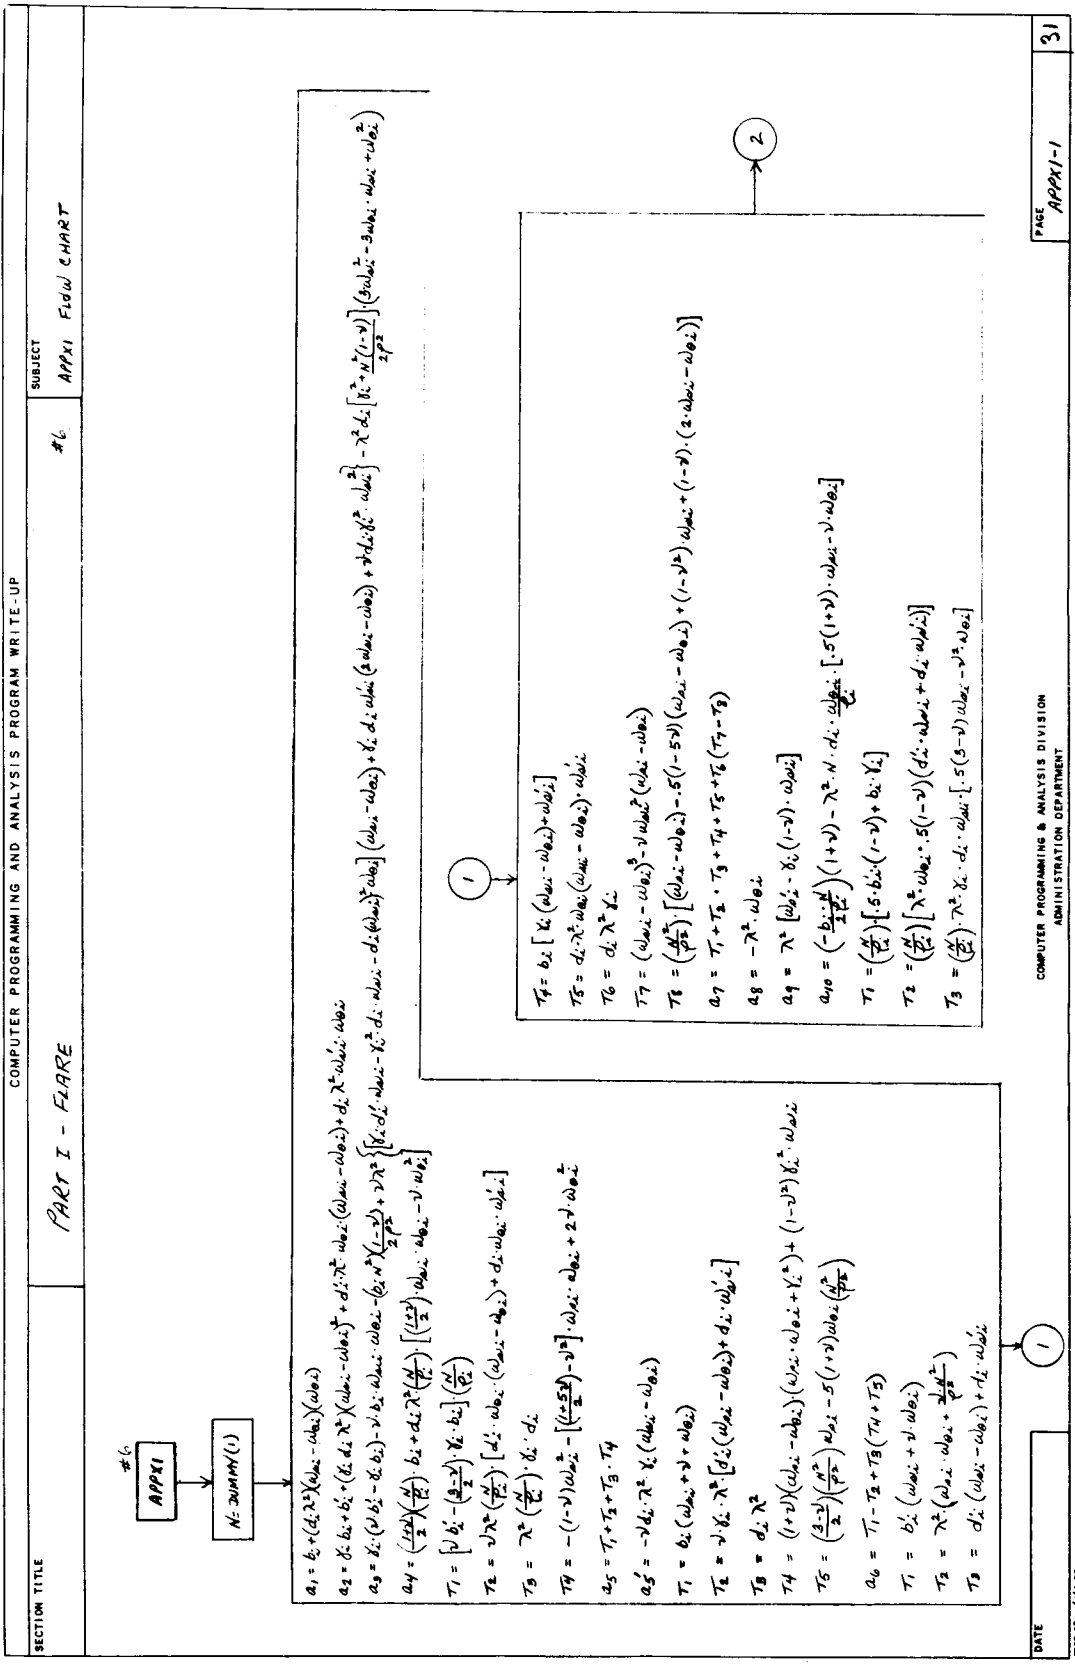 COMPUTER PROGRAMMING AND ANALYSIS PROGRAM WRITE-UP
SECTION TITLE
PART I - FLARE
#6
SUBJECT
APPX1 FLOW CHART
#6
APPX1
N=DUMMY(1)
a₁ = bᵢ + (dᵢλ²)(ωsᵢ - ωθᵢ)(ωθᵢ)
a₂ = γᵢbᵢ + bᵢ' + (γᵢdᵢλ²)(ωsᵢ - ωθᵢ)² + dᵢ'·λ²·ωθᵢ·(ωsᵢ - ωθᵢ) + dᵢλ²·ωsᵢ'·ωθᵢ
a₃ = γᵢ·(νbᵢ' - γᵢbᵢ) - ν·bᵢ·ωsᵢ·ωθᵢ - (bᵢN²)(1-ν)/2ρ² + νλ²{[γᵢdᵢ'·ωsᵢ - γᵢ²·dᵢ·ωsᵢ - dᵢ(ωsᵢ)²ωθᵢ](ωsᵢ - ωθᵢ) + γᵢdᵢωsᵢ'(2ωsᵢ - ωθᵢ) + νdᵢγᵢ²·ωsᵢ²} - λ²dᵢ[γᵢ² + N²(1-ν)/2ρ²]·(3ωsᵢ² - 3ωsᵢ·ωθᵢ + ωθᵢ²)
a₄ = ((1+ν)/2)(N/ρᵢ)·bᵢ + dᵢλ²·(N/ρᵢ)·[((1+ν)/2)·ωsᵢ·ωθᵢ - ν·ωθᵢ²]
T₁ = [νbᵢ' - ((3-ν)/2)·γᵢ·bᵢ]·(N/ρᵢ)
T₂ = νλ²(N/ρᵢ)·[dᵢ'·ωθᵢ·(ωsᵢ - ωθᵢ) + dᵢ·ωθᵢ·ωsᵢ']
T₃ = λ²(N/ρᵢ)·γᵢ·dᵢ
T₄ = -(1-ν)ωsᵢ² - [((1+5ν)/2) - ν²]·ωsᵢ·ωθᵢ + 2ν·ωθᵢ²
a₅ = T₁ + T₂ + T₃·T₄
a₅' = -νdᵢ·λ²·γᵢ(ωsᵢ - ωθᵢ)
T₁ = bᵢ(ωsᵢ + ν + ωθᵢ)
T₂ = ν·γᵢ·λ²[dᵢ'(ωsᵢ - ωθᵢ) + dᵢ·ωsᵢ']
T₃ = dᵢλ²
T₄ = (1+ν)(ωsᵢ - ωθᵢ)·(ωsᵢ·ωθᵢ + γᵢ²) + (1-ν²)γᵢ²·ωsᵢ
T₅ = ((3-ν)/2)(N²/ρ²)ωsᵢ - .5(1+ν)ωθᵢ(N²/ρ²)
a₆ = T₁ - T₂ + T₃(T₄ + T₅)
T₁ = bᵢ'(ωsᵢ + ν·ωθᵢ)
T₂ = λ²·(ωsᵢ·ωθᵢ + ν·N²/ρ²)
T₃ = dᵢ'(ωsᵢ - ωθᵢ) + dᵢ·ωsᵢ'
1
1
T₄ = bᵢ[γᵢ(ωsᵢ - ωθᵢ) + ωsᵢ']
T₅ = dᵢ·λ²·ωθᵢ(ωsᵢ - ωθᵢ)·ωsᵢ'
T₆ = dᵢλ²γᵢ
T₇ = (ωsᵢ - ωθᵢ)³ - νωsᵢ²(ωsᵢ - ωθᵢ)
T₈ = (N²/ρ²)·[(ωsᵢ - ωθᵢ) - .5(1-5ν)(ωsᵢ - ωθᵢ) + (1-ν²)·ωsᵢ + (1-ν)·(2·ωsᵢ - ωθᵢ)]
a₇ = T₁ + T₂·T₃ + T₄ + T₅ + T₆(T₇ - T₈)
a₈ = -λ²·ωθᵢ
a₉ = λ²[ωθᵢ' - γᵢ(1-ν)·ωsᵢ]
a₁₀ = (-bᵢ·N/2ρᵢ)(1+ν) - λ²·N·dᵢ·ωθᵢ/ρᵢ·[.5(1+ν)·ωsᵢ - ν·ωθᵢ]
T₁ = (N/ρᵢ)·[.5·bᵢ'·(1-ν) + bᵢ·γᵢ]
T₂ = (N/ρᵢ)[λ²·ωθᵢ·.5(1-ν)(dᵢ'·ωsᵢ + dᵢ·ωsᵢ')]
T₃ = (N/ρᵢ)·λ²·γᵢ·dᵢ·ωsᵢ·[.5(3-ν)ωsᵢ - ν²·ωθᵢ]
2
DATE
COMPUTER PROGRAMMING & ANALYSIS DIVISION
ADMINISTRATION DEPARTMENT
PAGE
APPX1-1
31